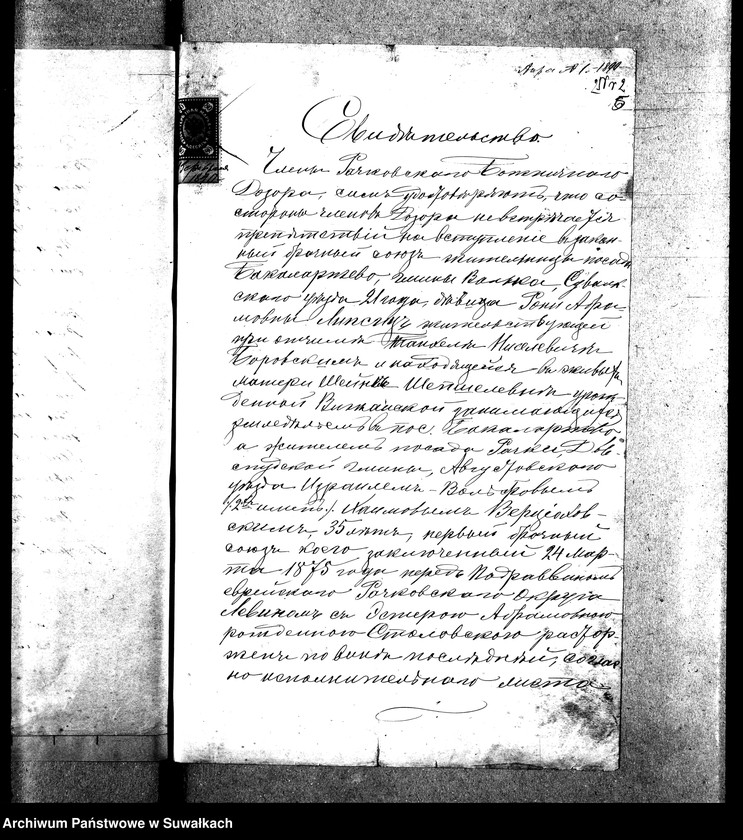 № 2
5
Свидѣтельство.
Члены Рачковскаго Божничнаго
Дозора, симъ удостовѣряютъ, что со
стороны членовъ Дозора невстрѣчается
препятствій на вступленіе въ закон-
ный брачный союзъ жительницы посада
Бакаларжево, гмины Волька, Сувалк-
скаго уѣзда 21 года, дѣвицы Абра-
мовны Липсцъ жительствующей
при отчимѣ Боровскимъ и находящейся въ живыхъ
матери Шейны Шепшелевны урож-
денной Вижайской занимающихся
въ пос. Бакаларжево
а жителемъ посада Рачки, Дов-
спудской гмины, Августовскаго
уѣзда Израилемъ-Вольфовымъ
/2хъ именъ/ Хаимовымъ Вержбов-
скимъ, 35 лѣтъ, первый брачный
союзъ коего заключенный 24 Мар-
та 1875 года передъ Подраввиномъ
еврейскаго Рачковскаго Округа
Левиномъ съ Эстерою Абрамовною
рожденною Столовскою растор-
женъ по винѣ послѣдней, соглас-
но исполнительнаго листа
Archiwum Państwowe w Suwałkach